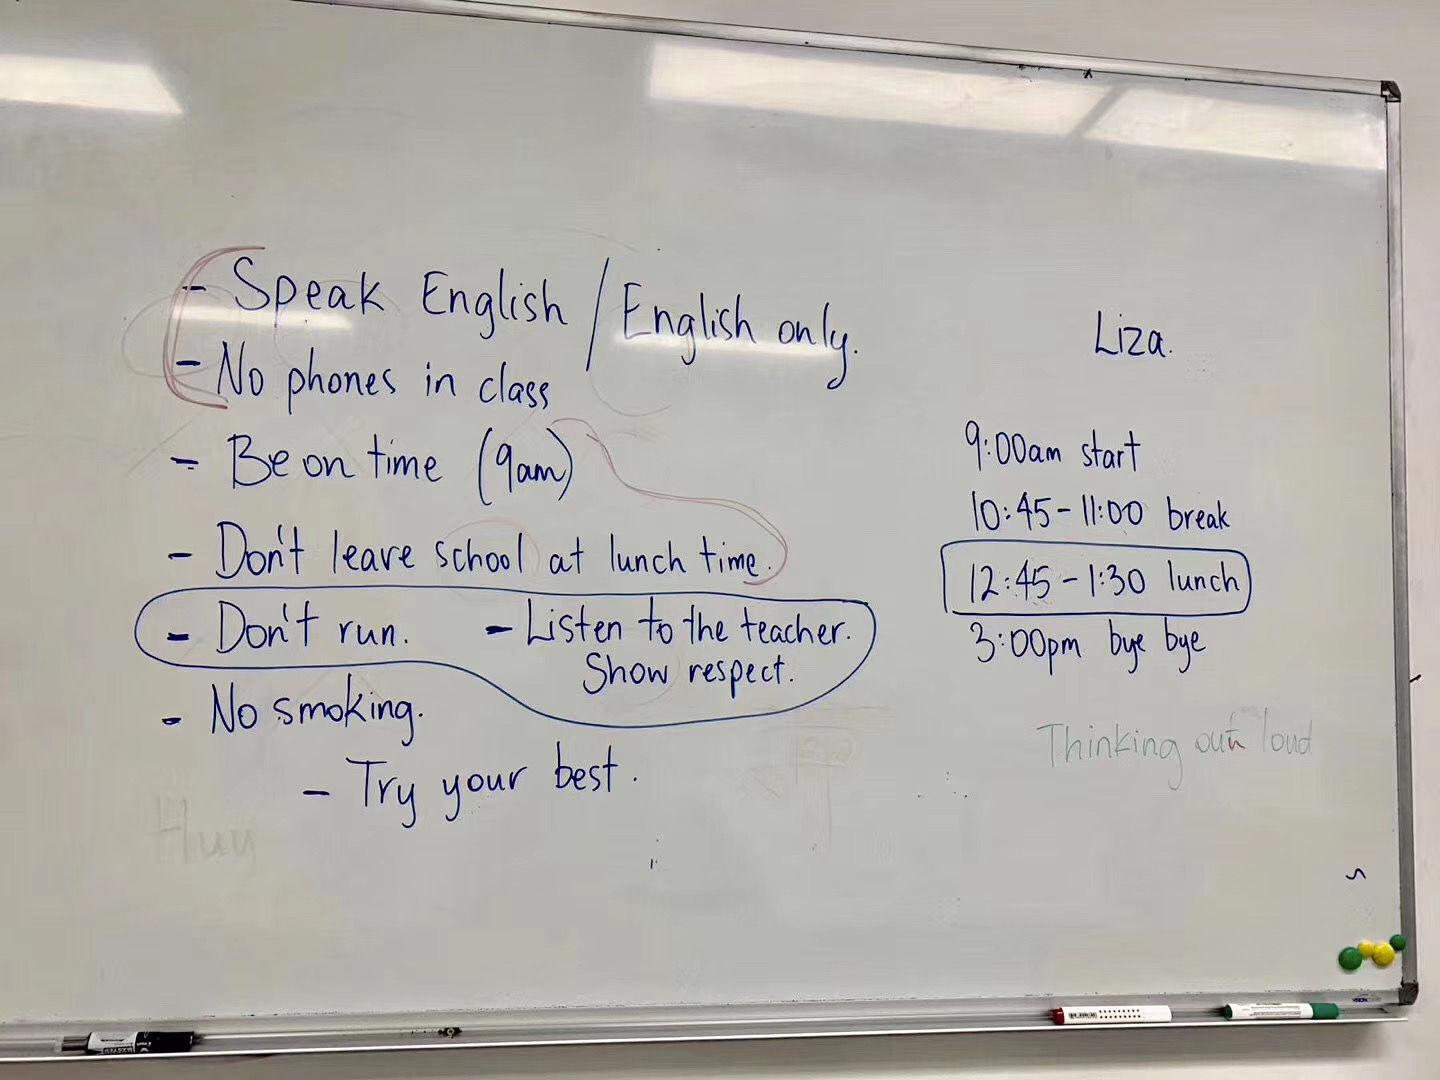 - Speak English / English only.
- No phones in class
- Be on time (9am)
- Don't leave school at lunch time.
- Don't run. - Listen to the teacher.
Show respect.
- No smoking.
- Try your best.
Huy
Liza.
9:00am start
10:45-11:00 break
12:45-1:30 lunch
3:00pm bye bye
Thinking out loud